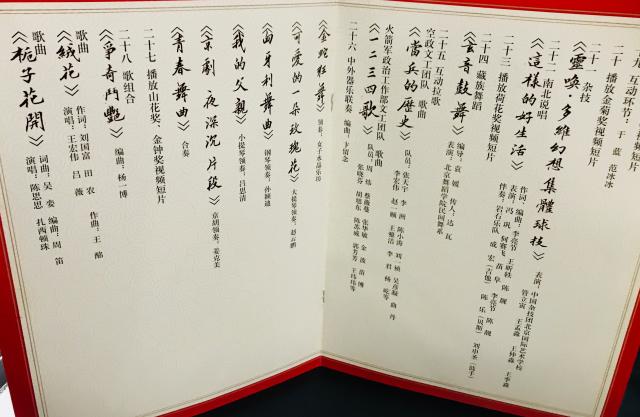 九 互动环节：于 蓝 范冰冰
二十 播放金菊奖视频短片
二十一 杂技
《靈喚·多維幻想·集體球技》
表演：中国杂技团北京国际艺术学校
二十二 南北说唱
《這樣的好生活》
作词、编曲：李亮节 王昕轶 陈 靓
表演：冯 巩 何赛飞 苗 阜 李亮节 陈 靓
伴奏：岩石乐队 成 宏（吉他） 陈 乐（贝斯） 刘中圣（鼓手）
二十三 播放荷花奖视频短片
二十四 藏族舞蹈
《玄音鼓舞》
编导：袁 媛 传人：达 瓦
表演：北京舞蹈学院民间舞系
二十五 互动拉歌
空政文工团 歌曲
《當兵的歷史》
队员：张天宇 李 洲 陈小涛 刘一祯
火箭军政治工作部文工团 歌曲
《一二三四歌》
二十六 中外器乐联奏 编曲：卞留念
《金蛇狂舞》 领奏：女子水晶乐坊
《可愛的一朵玫瑰花》 大提琴领奏：赵云鹏
《匈牙利舞曲》 钢琴领奏：孙颖迪
《我的父親》 小提琴领奏：吕思清
《京劇 夜深沉片段》 京胡领奏：姜克美
《青春舞曲》 合奏
二十七 播放山花奖、金钟奖视频短片
二十八 歌组合
《爭奇鬥艷》 编曲：杨一博
歌曲
《絨花》
作词：刘国富 田 农 作曲：王 酩
演唱：王宏伟 吕 薇
歌曲
《栀子花開》
词曲：吴 娈 编曲：周 笛
演唱：陈思思 扎西顿珠